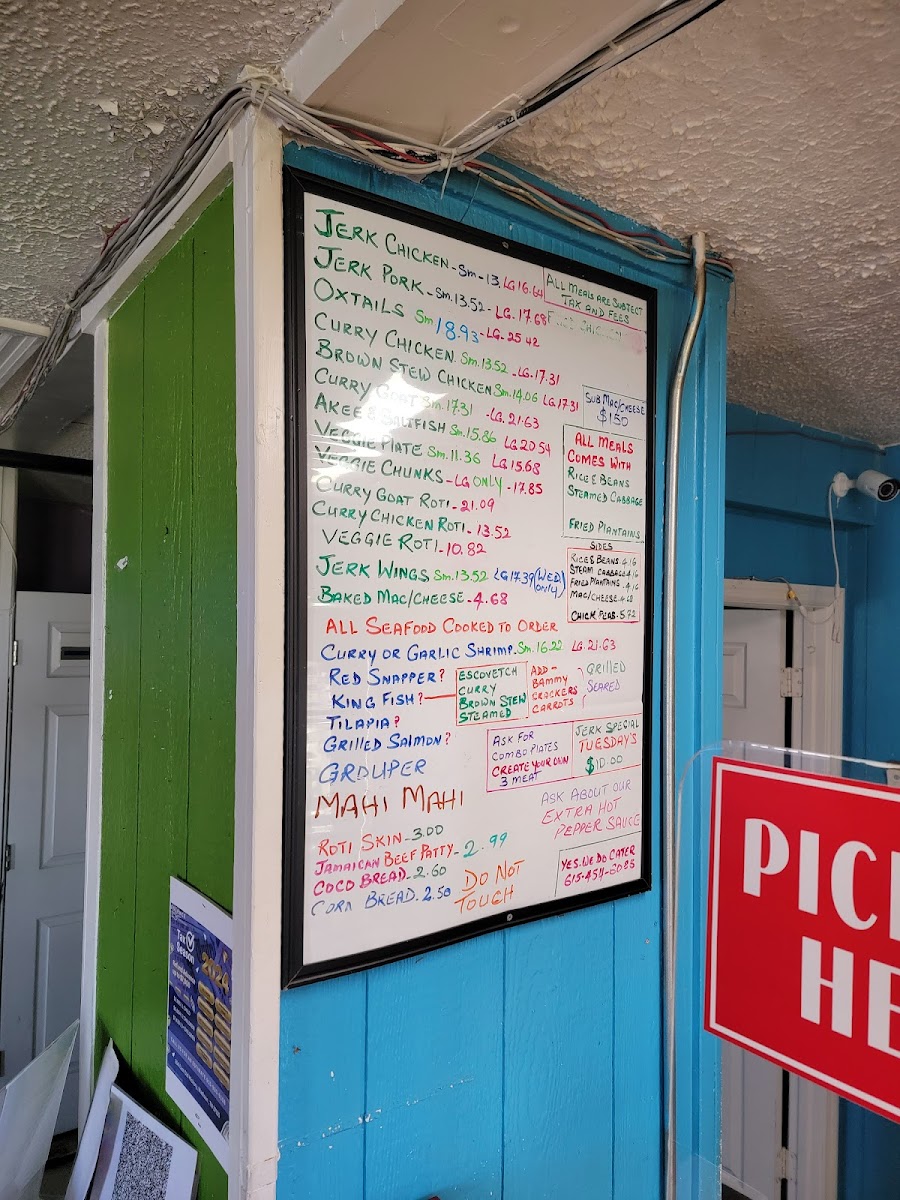 JERK CHICKEN-Sm-13. LG 16.64
JERK PORK-Sm.13.52-LG.17.68
OXTAILS Sm 18.93-LG.25 42
CURRY CHICKEN Sm.13.52-LG.17.31
BROWN STEW CHICKEN Sm.14.06 LG 17.31
CURRY GOAT Sm.17.31-LG.21.63
AKEE & SALTFISH Sm.15.86 LG 20.54
VEGGIE PLATE Sm.11.36 LG 15.68
VEGGIE CHUNKS-LG ONLY-17.85
CURRY GOAT ROTI-21.09
CURRY CHICKEN ROTI-13.52
VEGGIE ROTI-10.82
JERK WINGS Sm.13.52 LG 17.39 (WED ONLY)
BAKED MAC/CHEESE-4.68
ALL SEAFOOD COOKED TO ORDER
CURRY OR GARLIC SHRIMP.Sm.16.22 LG.21.63
RED SNAPPER?
KING FISH?
TILAPIA?
GRILLED SALMON?
GROUPER
MAHI MAHI
ROTI SKIN-3.00
JAMAICAN BEEF PATTY-2.99
COCO BREAD-2.60
CORN BREAD.2.50
DO NOT
TOUCH
ALL MEALS ARE SUBJECT
TAX AND FEES
SUB MAC/CHEESE
$1.50
ALL MEALS
COMES WITH
RICE & BEANS
STEAMED CABBAGE
FRIED PLANTAINS
SIDES
RICE & BEANS.4.16
STEAM CABBAGE 4.16
FRIED PLANTAINS.4.16
MAC/CHEESE.4.68
5.72
ESCOVETCH
CURRY
BROWN STEW
STEAMED
ADD-
BAMMY
CRACKERS
CARROTS
GRILLED
SEARED
ASK FOR
COMBO PLATES
CREATE YOUR OWN
3 MEAT
JERK SPECIAL
TUESDAY'S
$10.00
ASK ABOUT OUR
EXTRA HOT
PEPPER SAUCE
YES.WE DO CATER
Tax
Season
2024
PIC
HE